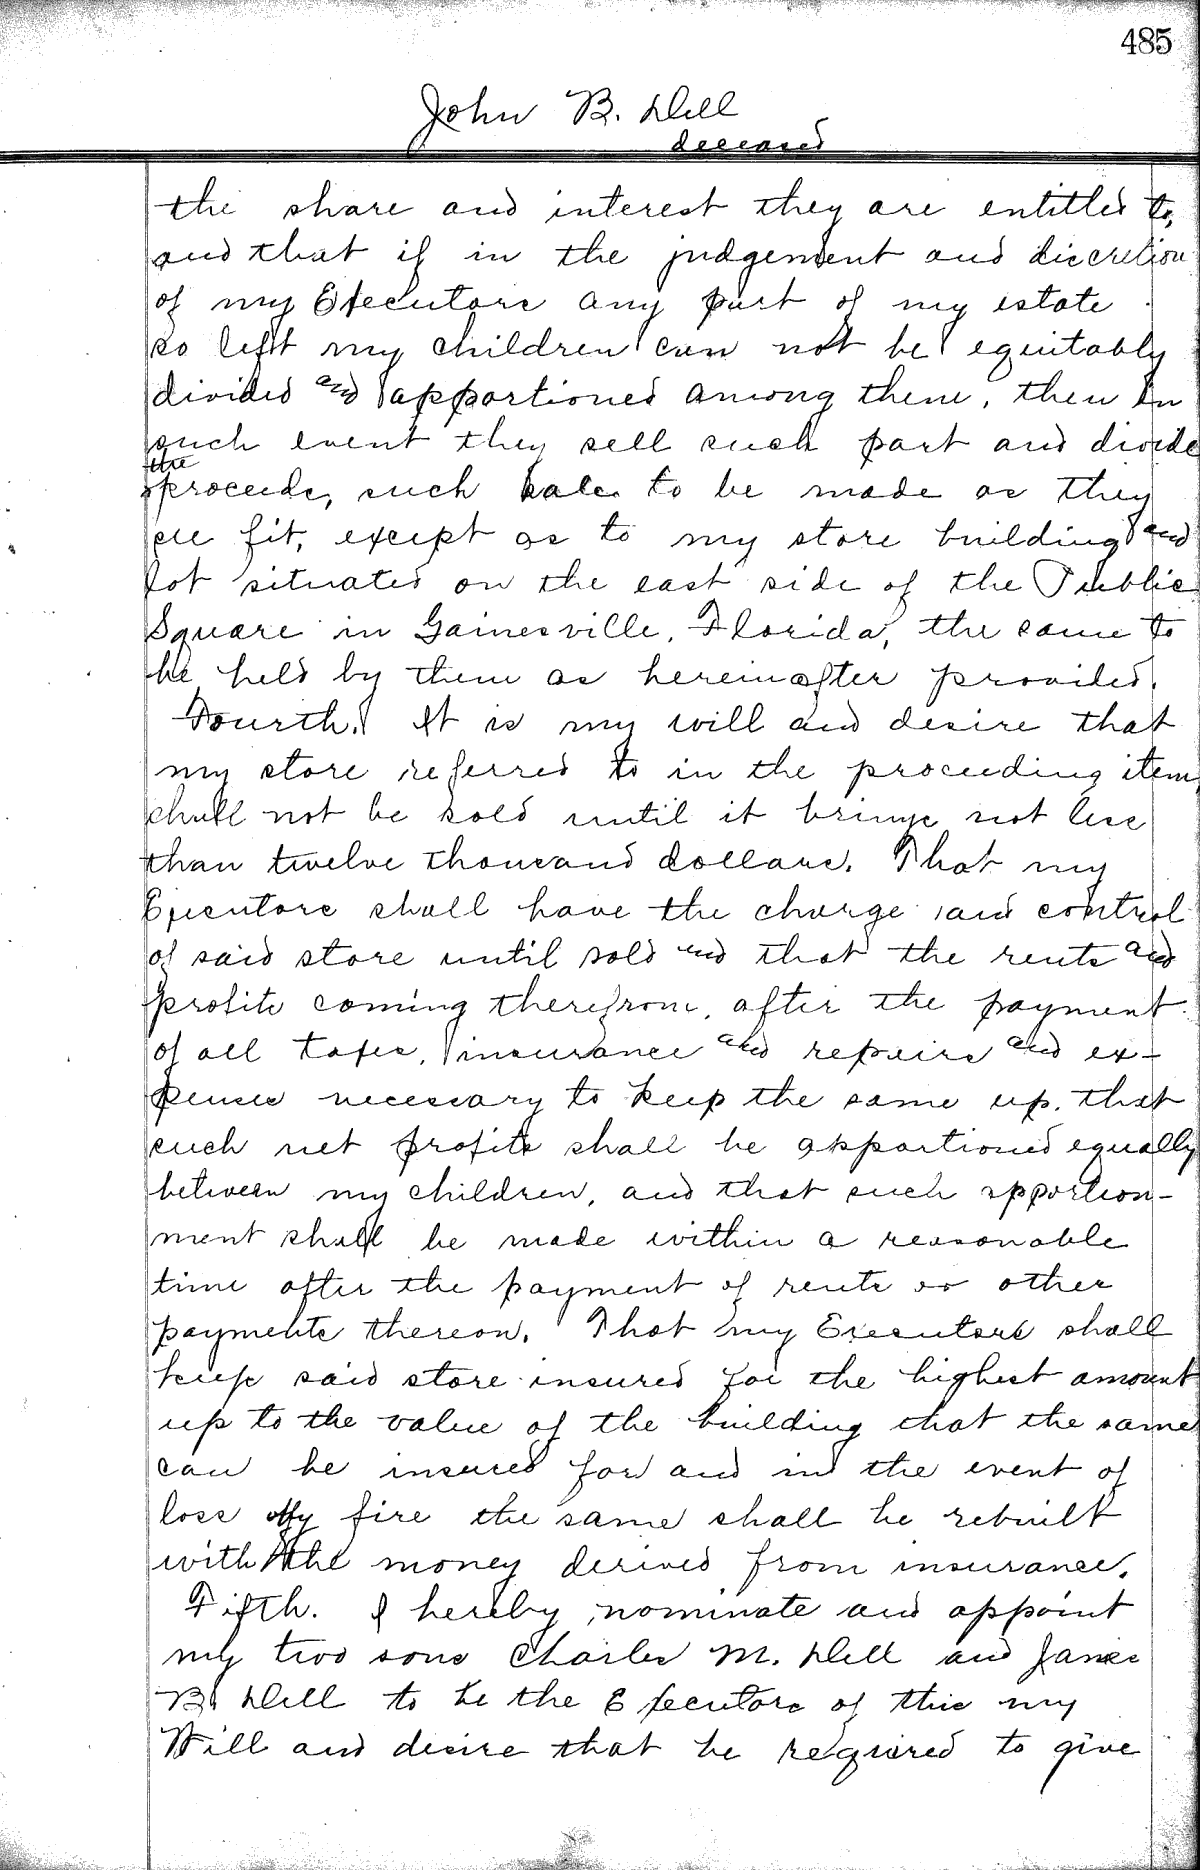 485
John B. Dell
deceased
the share and interest they are entitled to,
and that if in the judgement and discretion
of my Executors any part of my estate
so left my children can not be equitably
divided and apportioned among them, then in
such event they sell such part and divide
the
proceeds, such sales to be made as they
see fit, except as to my store building and
lot situated on the east side of the Public
Square in Gainesville, Florida, the same to
be held by them as hereinafter provided.
Fourth. It is my will and desire that
my store referred to in the proceeding item,
shall not be sold until it brings not less
than twelve thousand dollars. That my
Executors shall have the charge and control
of said store until sold and that the rents and
profits coming therefrom, after the payment
of all taxes, insurance and repairs and ex-
penses necessary to keep the same up, that
such net profits shall be apportioned equally
between my children, and that such apportion-
ment shall be made within a reasonable
time after the payment of rents or other
payments thereon. That my Executors shall
keep said store insured for the highest amount
up to the value of the building that the same
can be insured for and in the event of
loss by fire the same shall be rebuilt
with the money derived from insurance.
Fifth. I hereby nominate and appoint
my two sons Charles M. Dell and James
B. Dell to be the Executors of this my
Will and desire that he required to give